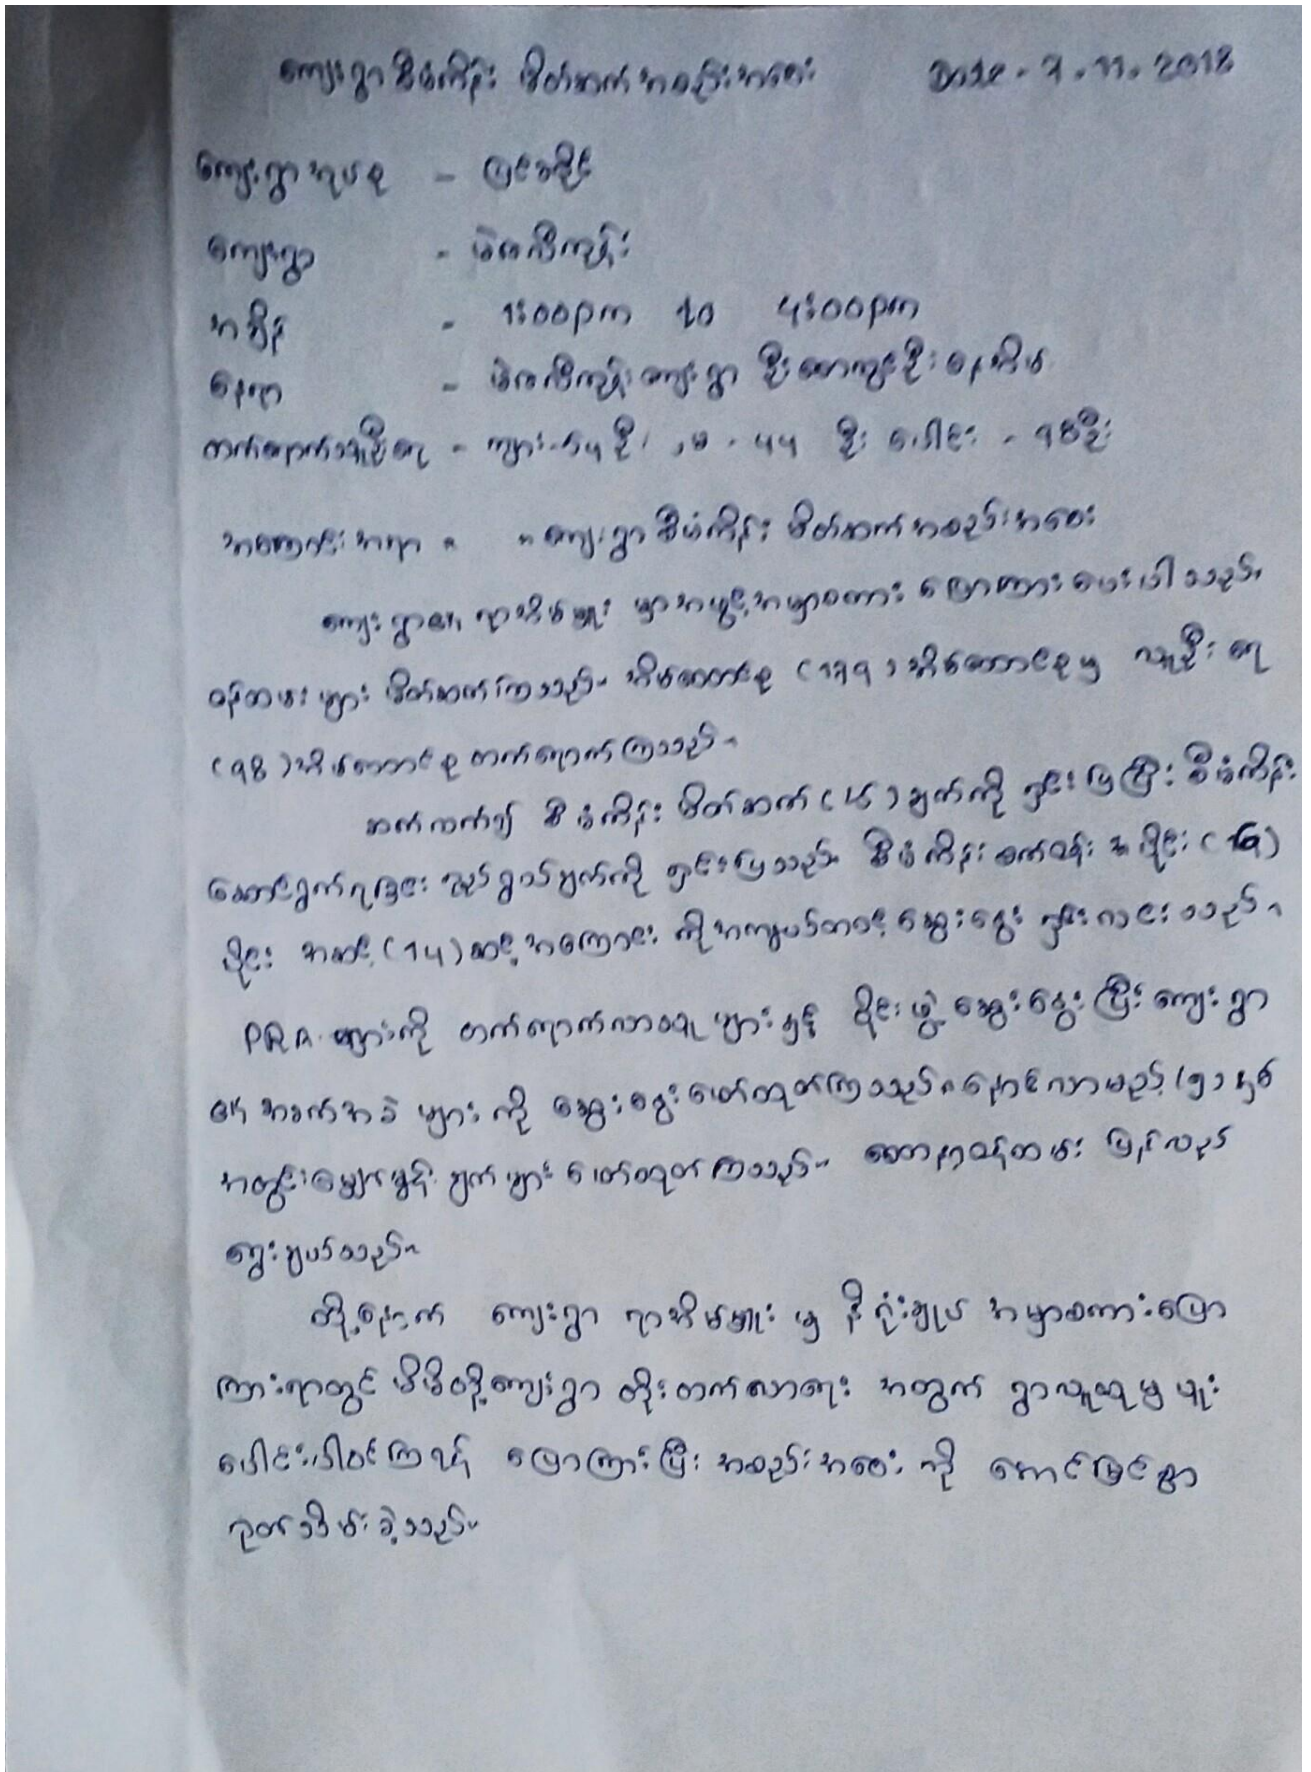 ကျေးရွာစီမံကိန်း မိတ်ဆက် အစည်းအဝေး Date - 7.11.2018
ကျေးရွာအုပ်စု - မြင်းခိုင်
ကျေးရွာ
အချိန် - 1:00pm to 4:00pm
နေရာ - ကျေးရွာ ဦး နေအိမ်
တက်ရောက်သူဦးရေ - ကျား - 54 ဦး ၊ မ - 44 ဦး ပေါင်း - 98 ဦး
အကြောင်းအရာ - " ကျေးရွာစီမံကိန်း မိတ်ဆက်အစည်းအဝေး
ကျေးရွာ၏ ရာအိမ်မှူး မှာ အဖွင့်အမှာစကား ပြောကြားပေးပါသည်။
ဝန်ထမ်းများ မိတ်ဆက်ကြသည်။ အိမ်ထောင်စု (179) အိမ်ထောင်စုမှ လူဦးရေ
(98) အိမ်ထောင်စု တက်ရောက်ကြသည်။
ဆက်လက်၍ စီမံကိန်းမိတ်ဆက် (15) ချက်ကို ရှင်းပြပြီး စီမံကိန်း
ဆောင်ရွက်ရခြင်း ရည်ရွယ်ချက်ကို ရှင်းပြသည်။ စီမံကိန်း စက်ဝန်း အပိုင်း
ပိုင်း အဆင့် (14) ဆင့် အကြောင်း ကိုအကျယ်တဝင့် ဆွေးနွေး ရှင်းလင်းသည်။
PRA များကို တက်ရောက်လာသူများနှင့် ပိုင်းဖွဲ့ ဆွေးနွေးပြီး ကျေးရွာ
၏ အခက်အခဲများ ကို ဆွေးနွေး ဖော်ထုတ်ကြသည်။ နှောင်လာမည့် (၅) နှစ်
အတွင်း မျှော်မှန်းချက်များ ဖော်ထုတ်ကြသည်။ စေတနာ့ဝန်ထမ်း ပြန်လည်
ရွေးချယ်သည်။
ထို့နောက် ကျေးရွာ ရာအိမ်မှူး မှ နိဂုံးချုပ် အမှာစကားပြော
ကြားရာတွင် မိမိတို့ကျေးရွာ တိုးတက်လာရေး အတွက် ရွာလူထုမှ ပူး
ပေါင်းပါဝင်ကြရန် ပြောကြားပြီး အစည်းအဝေး ကို အောင်မြင်စွာ
ရုတ်သိမ်းခဲ့သည်။